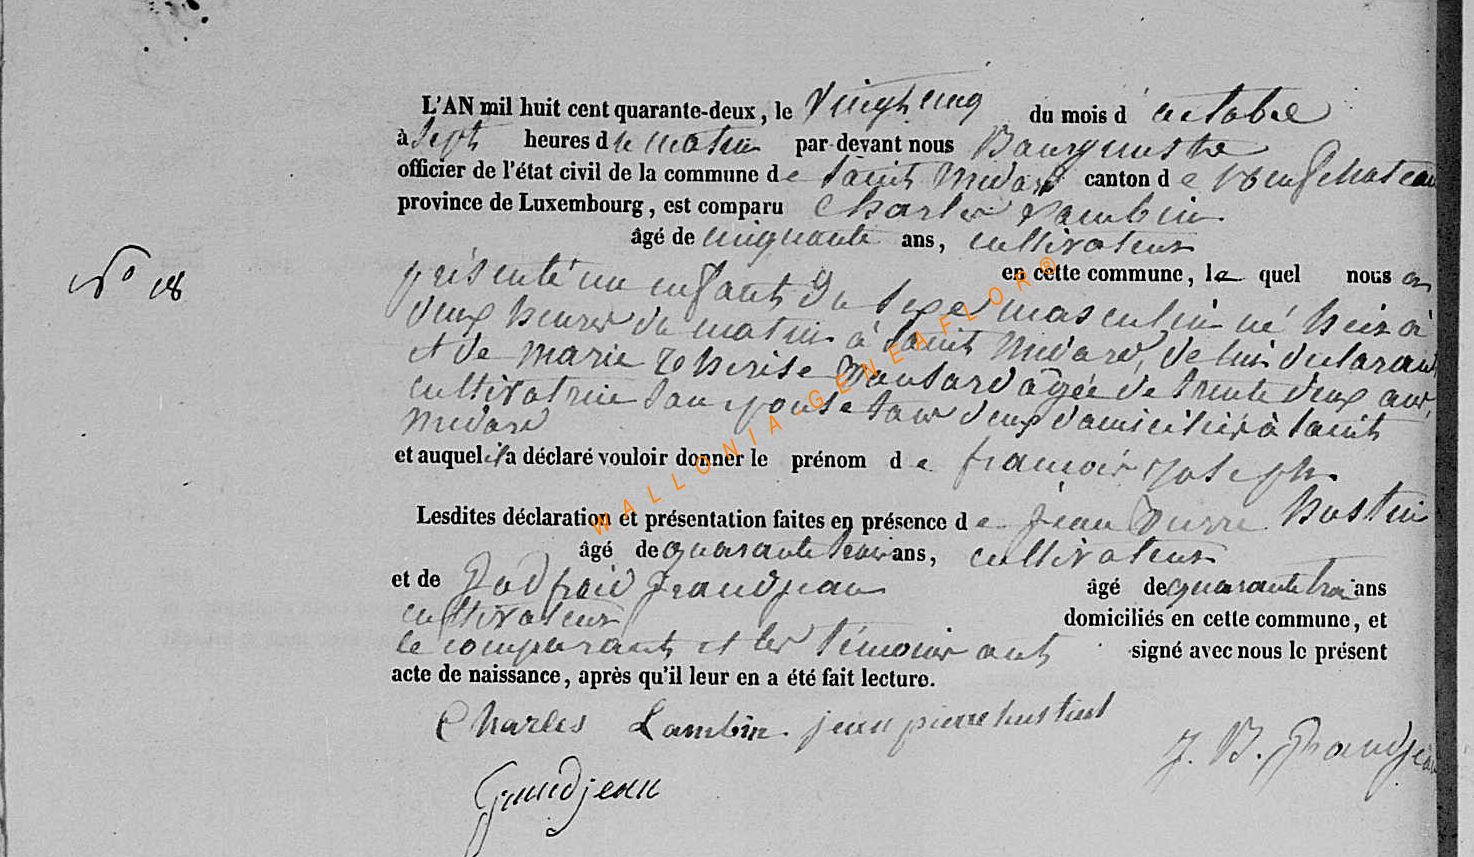 L'AN mil huit cent quarante-deux, le vingt cinq du mois d'octobre
à sept heures de matin par devant nous Bourgmestre
officier de l'état civil de la commune de Saint Médard canton de Neufchateau
province de Luxembourg, est comparu Charles Lambin
âgé de cinquante ans, cultivateur
en cette commune, le quel nous a
N° 18
présenté un enfant du sexe masculin né hier à
deux heures du matin à Saint Médard, de lui déclarant
et de Marie Thérèse agée de trente deux ans,
cultivatrice son epouse tous deux domiciliés à Saint
Médard
et auquel il a déclaré vouloir donner le prénom de françois Joseph
Lesdites déclaration et présentation faites en présence de jean Pierre Hustin
âgé de quarante ans, cultivateur
et de Godfroid Grandjean âgé de quarante trois ans
cultivateur domiciliés en cette commune, et
le comparant et les témoins ont signé avec nous le présent
acte de naissance, après qu'il leur en a été fait lecture.
Charles Lambin. jean pierre hustin
J. B. Grandjean
Grandjean
WALLONIA-GENEAFLOR®